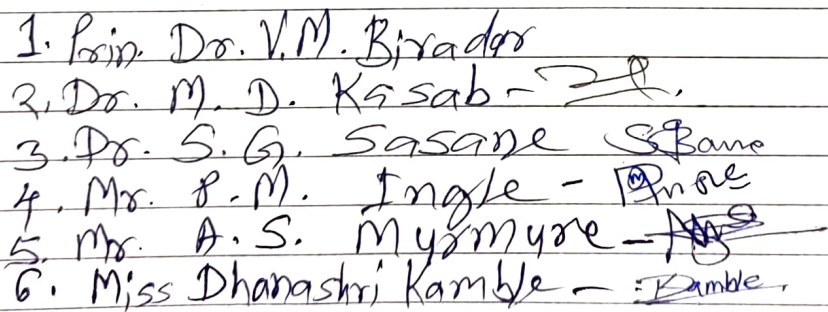 1. Prin. Dr. V.M. Biradar
2. Dr. M. D. Kasab -
3. Dr. S. G. Sasane
4. Mr. P. M. Ingle -
5. Mr. A. S. Murmure -
6. Miss Dhanashri Kamble - Kamble.